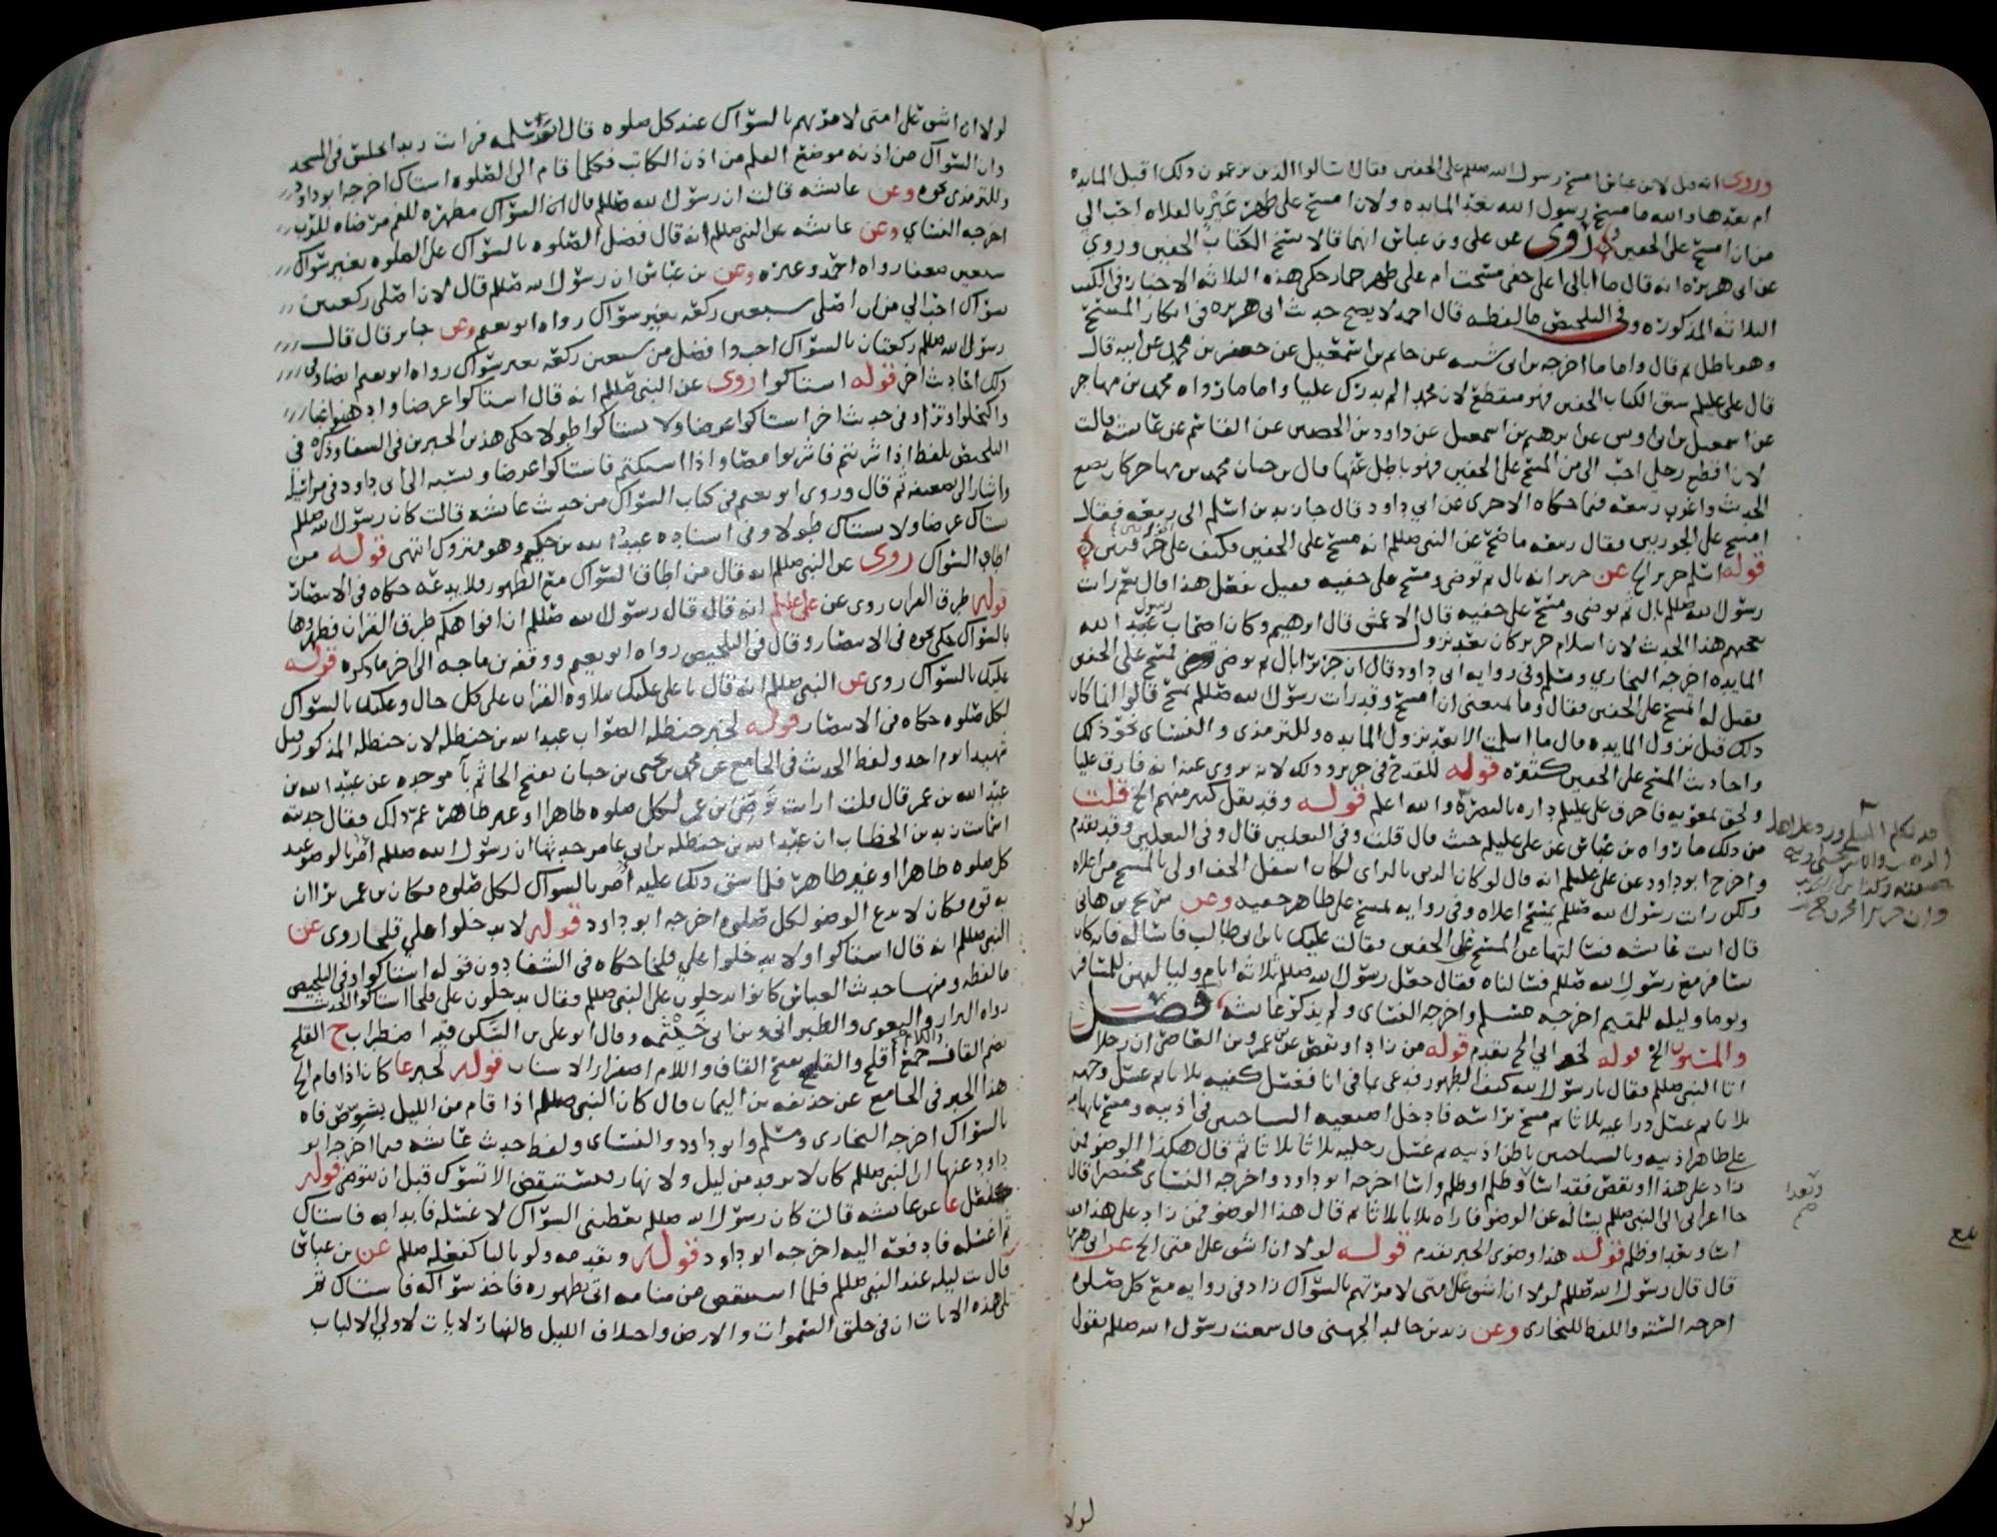 وروى انه قيل لابن عباس امسح رسول الله صللم على الخفين فقال اسالوا الذين يزعمون ذلك اقبل المايده
ام بعدها والله ما مسح رسول الله بعد المايده ولان امسح على ظهر عَيْرٍ بالفلاه احب الي
من ان امسح على الخفين روى عن علي وبن عباس انهما قالا نسخ الكتاب الخفين وروي
عن ابي هريره انه قال ما ابالي اعلى خفي مسحت ام على ظهر حمار حكى هذه الثلاثه الاخبار في الكتب
الثلاثه المذكوره وفي التلخيص ما لفظه قال احمد لا يصح حديث ابي هريره في انكار المسح
وهو باطل ثم قال واما ما اخرجه بن ابي شيبه عن حاتم بن اسمعيل عن جعفر بن محمد عن ابيه قال
قال علي عليلم سبق الكتاب الخفين فهو منقطع لان محمدا لم يدرك عليا واما ما رواه محمد بن مهاجر
عن اسمعيل بن ابي اويس عن ابرهيم بن اسمعيل عن داود بن الحصين عن القاسم عن عايشه قالت
لان اقطع رجلي احب الي من المسح على الخفين فهو باطل عنها قال بن حبان محمد بن مهاجر كان يضع
الحديث واغرب ربيعه فيما حكاه الاجري عن ابي داود قال جا زيد بن اسلم الى ربيعه فقال
امسح على الجوربين فقال ربيعه ما صح عن النبي صللم انه مسح على الخفين فكيف على خرقتين
قوله اسلم جرير الخ عن جرير انه بال ثم توضى ومسح على خفيه فقيل تفعل هذا قال نعم رايت
رسول الله صللم بال ثم توضى ومسح على خفيه قال الاعمش قال ابرهيم وكان اصحاب عبد الله
يعجبهم هذا الحديث لان اسلام جرير كان بعد نزول
المايده اخرجه البخاري ومسلم وفي روايه ابي داود قال ان جريرا بال ثم توضى فمسح على الخفين
فقيل له المسح على الخفين فقال وما يمنعني ان امسح وقد رايت رسول الله صللم يمسح قالوا انما كان
ذلك قبل نزول المايده قال ما اسلمت الا بعد نزول المايده وللترمذي والنسائي نحو ذلك
واحاديث المسح على الخفين كثيره قوله للقدح في جرير وذلك لانه يروى عنه انه فارق عليا
ولحق بمعويه فاحرق علي عليلم داره بالبصره والله اعلم قوله وقد نقل كثير منهم الخ قلت
من ذلك ما رواه بن عباس عن علي عليلم حيث قال قلت وفي النعلين قال وفي النعلين وقد تقدم
واخرج ابو داود عن علي عليلم انه قال لو كان الدين بالراي لكان اسفل الخف اولى بالمسح من اعلاه
ولكن رايت رسول الله صللم يمسح اعلاه وفي روايه يمسح على ظاهر خفيه وعن شريح بن هاني
قال اتيت عايشه فسالتها عن المسح على الخفين فقالت عليك بابن ابي طالب فاساله فانه كان
يسافر مع رسول الله صللم فسالناه فقال جعل رسول الله صللم ثلاثه ايام ولياليهن للمسافر
ويوما وليله للمقيم اخرجه مسلم واخرجه النسائي ولم يذكر عايشه فصل
والمسنون الخ قوله لخبر ابي الخ تقدم قوله من زاد او نقص عن عمرو بن العاص ان رجلا
اتا النبي صللم فقال يا رسول الله كيف الطهور فدعى بما في انا فغسل كفيه ثلاثا ثم غسل وجهه
ثلاثا ثم غسل ذراعيه ثلاثا ثم مسح براسه فادخل اصبعيه السباحتين في اذنيه ومسح بابهاميه
على ظاهر اذنيه وبالسباحتين باطن اذنيه ثم غسل رجليه ثلاثا ثلاثا ثم قال هكذا الوضو فمن
زاد على هذا او نقص فقد اسا وظلم او ظلم واسا اخرجه ابو داود واخرجه النسائي مختصرا قال
جا اعرابي الى النبي صللم يساله عن الوضو فاراه ثلاثا ثلاثا ثم قال هذا الوضو فمن زاد على هذا فقد
اسا وتعدا وظلم قوله هذا وضوي الخبر تقدم قوله لولا ان اشق على امتي الخ عن ابي هريره
قال قال رسول الله صللم لولا ان اشق على امتي لامرتهم بالسواك زاد في روايه مع كل صلوه
اخرجه السته واللفظ للبخاري وعن زيد بن خالد الجهني قال سمعت رسول الله صللم يقول
وتعدا
صح
بلغ
لولا
لولا ان اشق على امتي لامرتهم بالسواك عند كل صلوه قال ابو سلمه فرايت زيدا يجلس في المسجد
وان السواك من اذنه موضع القلم من اذن الكاتب فكلما قام الى الصلوه استاك اخرجه ابو داود
وللترمذي نحوه وعن عايشه قالت ان رسول الله صللم قال ان السواك مطهره للفم مرضاه للرب
اخرجه النسائي وعن عايشه عن النبي صللم انه قال فضل الصلوه بالسواك على الصلوه بغير سواك
سبعين ضعفا رواه احمد وغيره وعن بن عباس ان رسول الله صللم قال لان اصلي ركعتين
بسواك احب الي من ان اصلي سبعين ركعه بغير سواك رواه ابو نعيم وعن جابر قال قال
رسول الله صللم ركعتان بالسواك افضل من سبعين ركعه بغير سواك رواه ابو نعيم ايضا وفي
ذلك احاديث اخر قوله استاكوا روي عن النبي صللم انه قال استاكوا عرضا وادهنوا غبا
واكتحلوا وترا وفي حديث اخر استاكوا عرضا ولا تستاكوا طولا حكى هذين الخبرين في الشفا وذكره في
التلخيص بلفظ اذا شربتم فاشربوا مصا واذا استكتم فاستاكوا عرضا ونسبه الى ابي داود في مراسيله
واشار الى ضعفه ثم قال وروى ابو نعيم في كتاب السواك من حديث عايشه قالت كان رسول الله صللم
يستاك عرضا ولا يستاك طولا وفي اسناده عبد الله بن حكيم وهو متروك انتهى قوله من
اطاق السواك روى عن النبي صللم انه قال من اطاق السواك مع الطهور فلا يدعه حكاه في الانتصار
قوله طرق القران روى عن علي عليلم انه قال قال رسول الله صللم ان افواهكم طرق القران فطهروها
بالسواك حكى نحوه في الانتصار وقال في التلخيص رواه ابو نعيم ووقفه بن ماجه الى اخر ما ذكره قوله
عليك بالسواك روى عن النبي صللم انه قال يا علي عليك بتلاوه القران على كل حال وعليك بالسواك
لكل صلوه حكاه في الانتصار قوله لخبر حنظله الصواب عبد الله بن حنظله لان حنظله المذكور قتل
شهيدا يوم احد ولفظ الحديث في الجامع عن محمد بن يحيى بن حبان بفتح الحا ثم با موحده عن عبيد الله بن
عبد الله بن عمر قال قلت ارايت توضي بن عمر لكل صلوه طاهرا او غير طاهر عم ذلك فقال حدثته
اسما بنت زيد بن الخطاب ان عبد الله بن حنظله بن ابي عامر حدثها ان رسول الله صللم امر بالوضو عند
كل صلوه طاهرا او غير طاهر فلما شق ذلك عليه اُمر بالسواك لكل صلوه فكان بن عمر يرا ان
به قوه فكان لا يدع الوضو لكل صلوه اخرجه ابو داود قوله لا تدخلوا علي قلحا روى عن
النبي صللم انه قال استاكوا ولا تدخلوا علي قلحا حكاه في الشفا دون قوله استاكوا وفي التلخيص
ما لفظه ومنها حديث العباس كانوا يدخلون على النبي صللم فقال تدخلون علي قلحا استاكوا الحديث
رواه البزار والبغوي والطبراني وبن ابي خيثمه وقال ابو علي بن السكن فيه اضطراب ح القلح
بضم القاف جمع اقلح والقلح بفتح القاف واللام اصفرار الاسنان قوله لخبر عا كان اذا قام الخ
هذا الخبر في الجامع عن حذيفه بن اليمان قال كان النبي صللم اذا قام من الليل يشوص فاه
بالسواك اخرجه البخاري ومسلم وابو داود والنسائي ولفظ حديث عايشه فيما اخرجه ابو
داود عنها ان النبي صللم كان لا يرقد من ليل ولا نهار فيستيقض الا تسوك قبل ان يتوضى قوله
عا عن عايشه قالت كان رسول الله صللم يعطيني السواك لاغسله فابدا به فاستاك
ثم اغسله فادفعه اليه اخرجه ابو داود قوله وبعد مه ولو ليلا كفعله صللم عن بن عباس
قال بت ليله عند النبي صللم فلما استيقض من منامه اتى طهوره فاخذ سواكه فاستاك ثم
تلى هذه الايات ان في خلق السموات والارض واختلاف الليل والنهار لايات لاولي الالباب